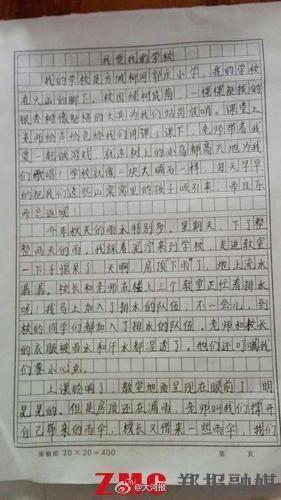 我爱我的学校
我的学校是方城柳河郭庄小学。我的学校
在大山的脚下。校园绿树成荫，一棵棵挺拔的
银杏树像魁梧的士兵为我们站岗放哨。课堂上
老师绘声绘色给我们讲课，课下，老师带着我
爱一起做游戏，就连树上的小鸟都高兴地为我
们歌唱！学校就像一块大磁石一样，每天早早
的把我们这些山窝窝里的孩子吸引来，而且乐
而忘返呢！
今年秋天的雨水特别多。星期天，下了整
整两天的雨。我踩着泥泞来到学校，走进教室
一下子惊呆了，天啊，房顶下雨了，地上流水
潺潺。校长和老师在楼上三个教室正忙着排水
呢！我马上加入了排水的队伍，不一会儿，到
校的同学们都加入了排水的队伍。老师和校长
的衣服被雨水和汗水都湿透了，他们还叮嘱我
们要小心点。
上课铃响了，教室地面呈现在眼前了，明
晃晃的。但是房顶还在滴雨，老师叫我们撑开
自己带来的雨伞，校长又借来一些雨伞，我们
原稿纸 20×20=400 第 页
ZMG 郑报融媒
@大河报